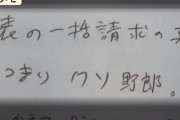 表の一括請求の
つまり クソ野郎。